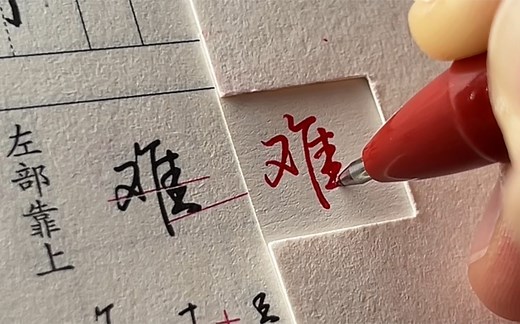 左部靠上
难
难